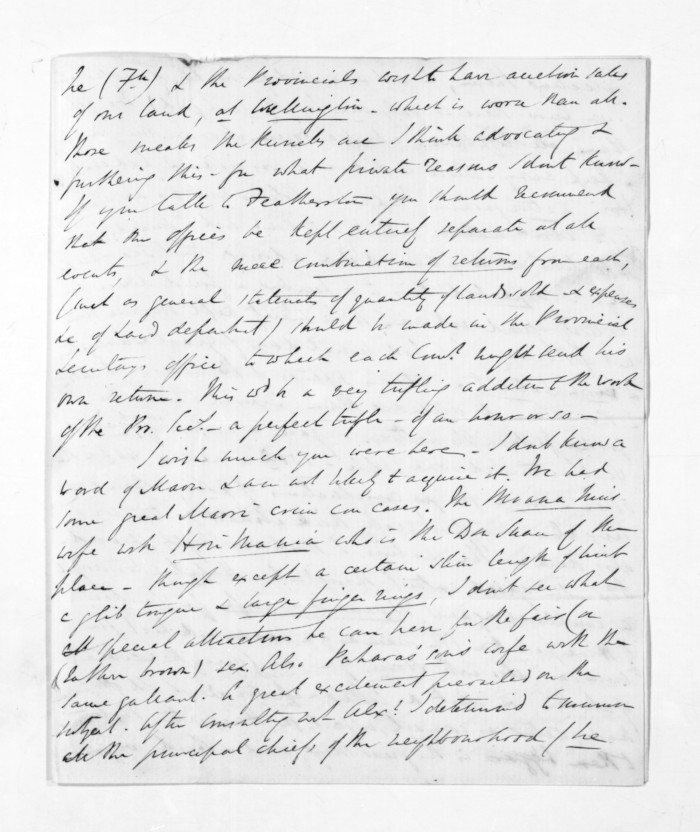 he (Fth) & the Provincials wish to have auction sales
of our land, at Wellington - which is worse than all.
Those sneaks the Hunters are I think advocating &
furthering this - for what private reasons I don't know -
If you talk to Featherston you should recommend
that the offices be kept entirely separate at all
events, & the mere combination of returns from each,
(such as general statements of quantity of lands sold & expenses
&c of Land department) should be made in the Provincial
Secretarys office to which each Comr. might send his
own return. This wd be a very trifling addition to the work
of the Pro. Secy. - a perfect trifle - of an hour or so -
I wish much you were here - I don't know a
word of Maori & am not likely to acquire it. We had
some great Maori crim con cases. The Moana
wife with Hori who is the Don Juan of the
place - though except a certain slim length of limb
a glib tongue & large finger rings, I don't see what
special attractions he can have for the fair (or
(rather brown) sex. Also son's wife with the
same gallant. A great excitement prevailed on the
subject. After consulting with Alexr. I determined to summon
all the principal chiefs of the neighbourhood (he